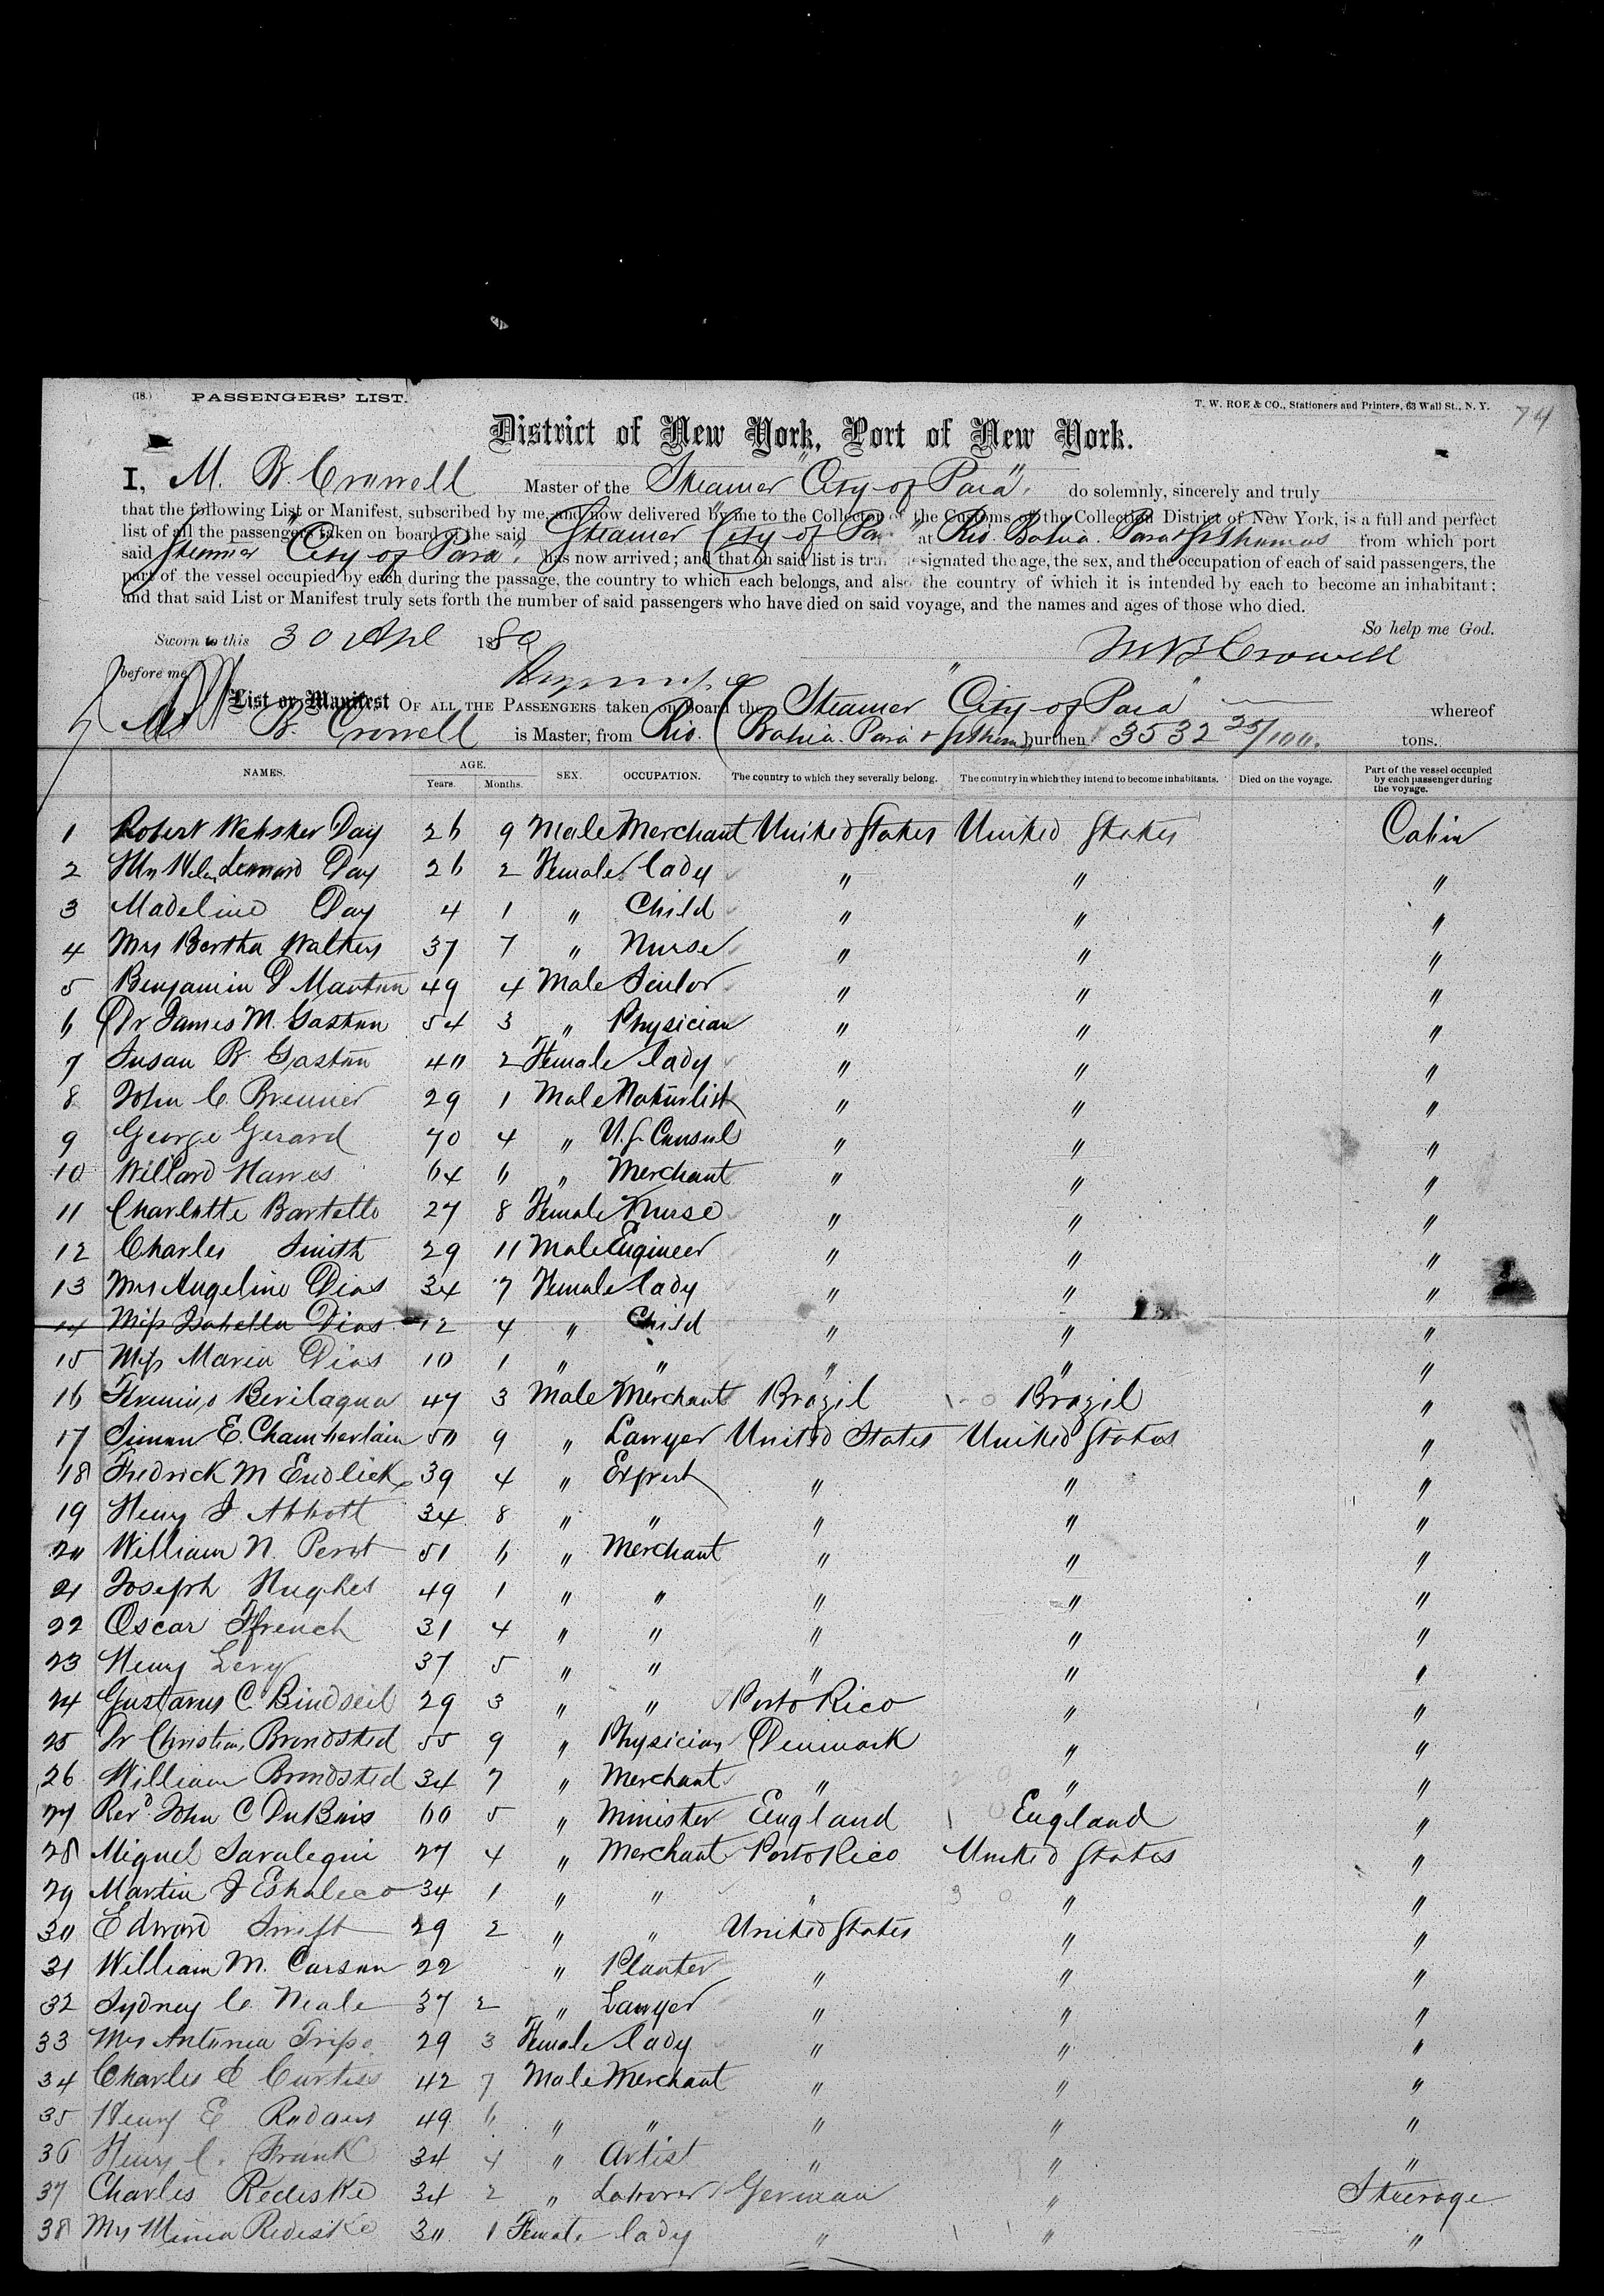 (18.) PASSENGERS' LIST.
T. W. ROE & CO., Stationers and Printers, 63 Wall St., N. Y.
74
District of New York, Port of New York.
I, M. B. Crowell Master of the Steamer "City of Para" do solemnly, sincerely and truly
that the following List or Manifest, subscribed by me, and now delivered by me to the Collector of the Customs of the Collection District of New York, is a full and perfect
list of all the passengers taken on board of the said Steamer "City of Para" at Rio. Bahia. Para & St Thomas from which port
said Steamer "City of Para" has now arrived; and that on said list is truly designated the age, the sex, and the occupation of each of said passengers, the
part of the vessel occupied by each during the passage, the country to which each belongs, and also the country of which it is intended by each to become an inhabitant;
and that said List or Manifest truly sets forth the number of said passengers who have died on said voyage, and the names and ages of those who died.
So help me God.
Sworn to this 30 Apl 188
M B Crowell
before me
List or Manifest OF ALL THE PASSENGERS taken on board the Steamer "City of Para" whereof
M B. Crowell is Master, from Rio. (Bahia. Para & St Thomas) burthen 3532 25/100. tons.
NAMES. AGE. Years. Months. SEX. OCCUPATION. The country to which they severally belong. The country in which they intend to become inhabitants. Died on the voyage. Part of the vessel occupied by each passenger during the voyage.
1 Robert Webster Day 26 9 Male Merchant United States United States Cabin
2 Mrs Helen Leonard Day 26 2 Female lady " " "
3 Madeline Day 4 1 " Child " " "
4 Mrs Bertha Walters 37 7 " Nurse " " "
5 Benjamin D Martin 49 4 Male " " "
6 Dr James M. Gaston 54 3 " Physician " " "
7 Susan B Gaston 40 2 Female lady " " "
8 John C. Brenner 29 1 Male Naturlist " " "
9 George Gerard 70 4 " U.S. Consul " " "
10 Willard Hawes 64 6 " Merchant " " "
11 Charlotte Bartello 27 8 Female Nurse " " "
12 Charles Smith 29 11 Male Engineer " " "
13 Mrs Angeline Dias 34 7 Female lady " " "
14 Miss Isabella Dias 12 4 " Child " " "
15 Miss Maria Dias 10 1 " " " " "
16 Bevilaqua 47 3 Male Merchant Brazil Brazil "
17 Simon E. Chamberlain 50 9 " Lawyer United States United States "
18 Fredrick M Endlich 39 4 " Expert " " "
19 Henry J Abbott 34 8 " " " " "
20 William N. Perot 51 6 " Merchant " " "
21 Joseph Hughes 49 1 " " " " "
22 Oscar Ffrench 31 4 " " " " "
23 Henry Levy 37 5 " " " " "
24 Gustavus C Bindseil 29 3 " " Porto Rico " "
25 Dr Christian Brondsted 55 9 " Physician Denmark " "
26 William Brondsted 34 7 " Merchant " " "
27 Revd John C DuBois 60 5 " Minister England England "
28 Miguel Saralegui 27 4 " Merchant Porto Rico United States "
29 Martin J 34 1 " " " " "
30 Edward Swift 29 2 " " United States " "
31 William M. Carson 22 " Planter " " "
32 Sydney C. Neale 37 2 " Lawyer " " "
33 Mrs Antonia 29 3 Female lady " " "
34 Charles E Curtiss 42 7 Male Merchant " " "
35 Henry E 49 6 " " " " "
36 Henry C. Frank 34 4 " Artist " " "
37 Charles Rediske 34 2 " Laborer German " Steerage
38 Mrs Minna Rediske 30 1 Female lady " " "